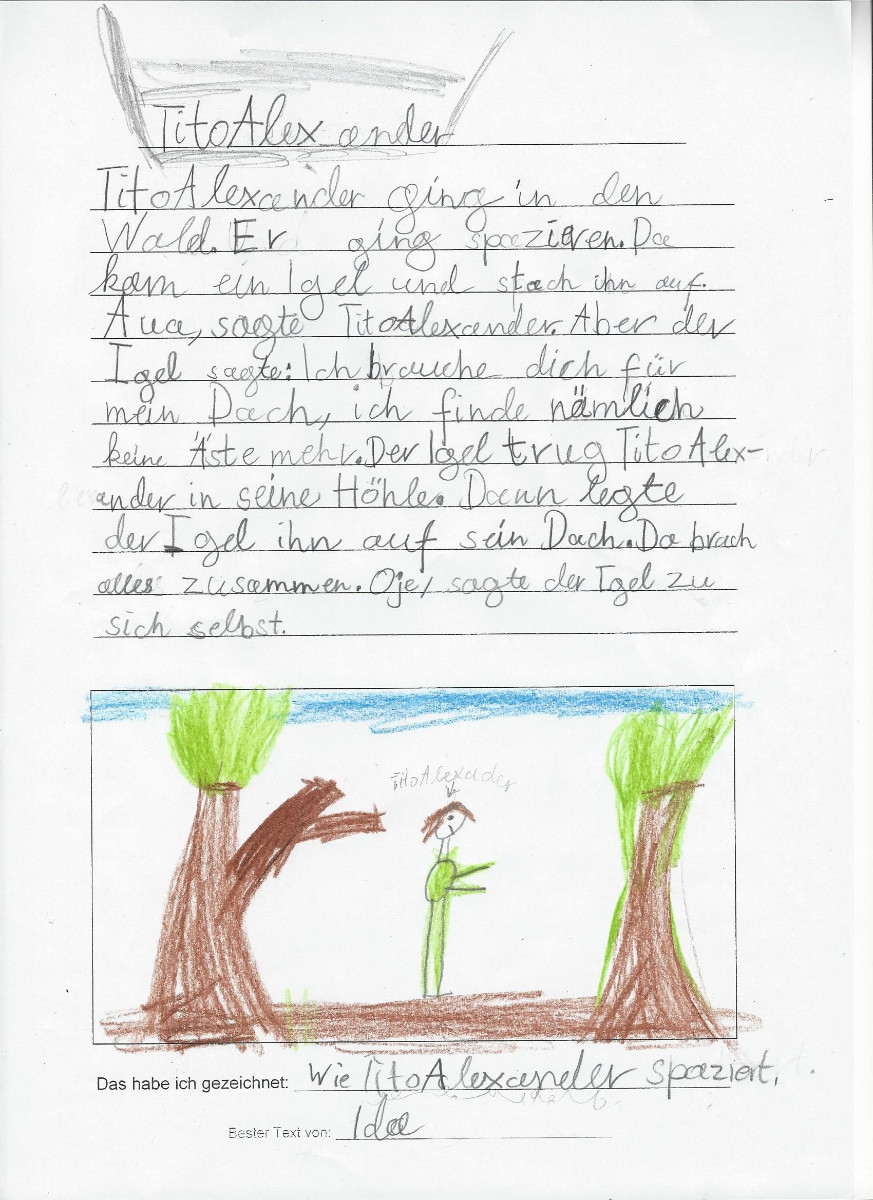 TitoAlexander
TitoAlexander ging in den
Wald. Er ging spazieren. Da
kam ein Igel und stach ihn auf.
Aua, sagte TitoAlexander. Aber der
Igel sagte: Ich brauche dich für
mein Dach, ich finde nämlich
keine Äste mehr. Der Igel trug TitoAlex-
ander in seine Höhle. Dann legte
der Igel ihn auf sein Dach. Da brach
alles zusammen. Oje, sagte der Igel zu
sich selbst.
TitoAlexader
Das habe ich gezeichnet: Wie TitoAlexander spaziert.
Bester Text von: Ida